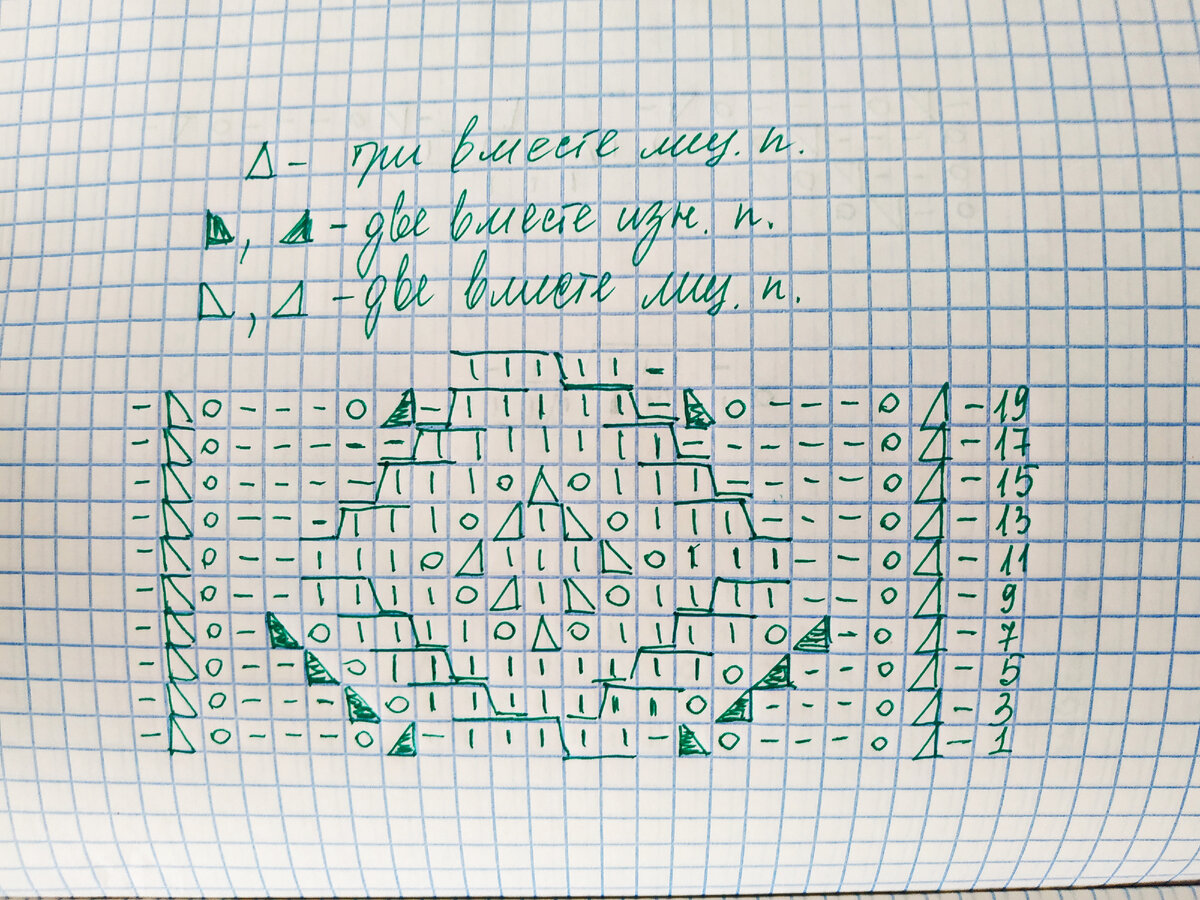 △ – три вместе лиц. п.
◣, ◢ – две вместе изн. п.
◺, ◿ – две вместе лиц. п.
19
17
15
13
11
9
7
5
3
1